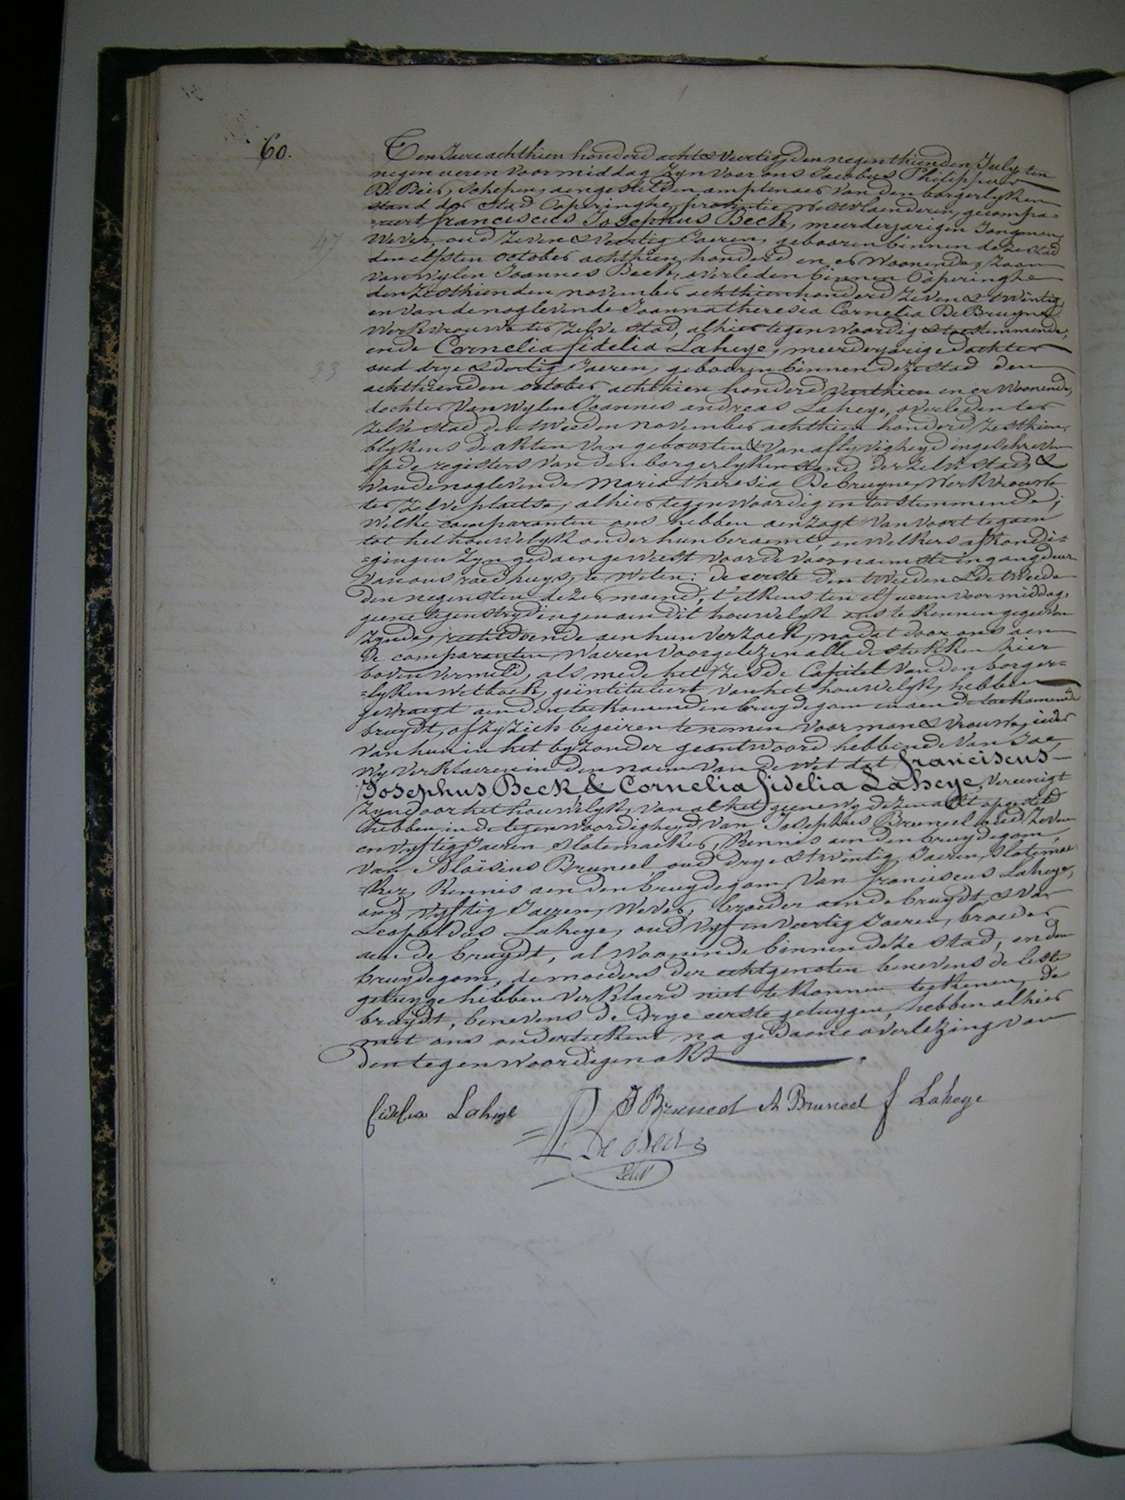 60.
Ten Jaere achthien honderd acht & veertig, den negenthienden July ten
negen ueren voormiddag zyn voor ons Jacobus Philippus
De Beir, Schepen, aengestelden amptenaer van den borgerlyken
stand der Stad Poperinghe, provintie Westvlaenderen, gecompa-
reert franciscus Josephus Beck, meerderjarigen Jongman,
47 Wever, oud zeven & veertig Jaeren, gebooren binnen deze Stad
den elfsten october achthien honderd en er Woonende, zoon
van Wylen Joannes Beck, overleden binnen Poperinghe
den zesthienden november achthien honderd zeven & twintig,
en van de naglevende Joanna theresia Cornelia De Bruyne,
Werkvrouwe ter zelve stad, alhier tegenwoordig & toestemmende,
ende Cornelia fidelia Laheye, meerderjarige dochter
33 oud drye & dertig Jaeren, gebooren binnen deze Stad den
achthienden october achthien honderd veerthien en er Woonende,
dochter van Wylen Joannes andreas Laheye, overleden ter
zelve stad den tweeden november achthien honderd zesthien,
blykens de akten van geboorten & van aflyvigheyd ingeschreven
op de registers van den borgerlyken stand der zelve Stad, &
van de naglevende Maria theresia Debruyne, Werkvrouwe
ter zelve plaetse, alhier tegenwoordig en toestemmende;
Welke comparanten ons hebben aenzogt van voort te gaen
tot het houwelyk onder hun beraemt, en welkers afkondi-
gingen zyn gedaen geweest voor de voornaemste ingangdeur
van ons raedhuys, te weten: de eerste den tweeden & de tweede
den negensten dezer maend, t'elkens ten elf ueren voormiddag,
geene tegenstrydingen aen dit houwelyk ons te kennen gegeven
zynde, rechtdoende aen hun verzoek, nadat door ons aen
de comparanten waeren voorgelezen alle de stukken hier
boven vermeld, als mede het zesde Capitel van den borger-
lyken wetboek, geintituleert van het houwelyk, hebben
gevraegt aen den toekomenden bruydegom en aen de toekomende
bruydt, of zy zich begeiren te nemen voor man & vrouwe, ieder
van hun in het byzonder geantwoord hebbende van Jae,
Wy verklaeren in den naem van de Wet dat franciscus
Josephus Beck & Cornelia fidelia Laheye, Vereenigt
zyn door het houwelyk, van al het geene wy dezen akt opgesteld
hebben in de tegenwoordigheyd van Josephus Bruneel oud zeven
en vyftig Jaeren slotemaeker, Kennis aen den bruydegom,
van Aloïsius Bruneel oud drye & twintig Jaeren, slotemae-
ker, Kennis aen den bruydegom, Van franciscus Laheye,
oud vyftig Jaeren, Wever, broeder aen de bruydt, & van
Leopoldus Laheye, oud vyf en veertig Jaeren, broeder
aen de bruydt, al Woonende binnen deze stad, en den
bruydegom, de moeders der echtgenoten benevens de leste
getuyge hebben verklaerd niet te konnen teekenen, de
bruydt, benevens de drye eerste getuygen, hebben alhier
met ons onderteekent, na gedaene overlezing van
den tegenwoordigen akt.
fidelia Laheye J Bruneel A Bruneel f Laheye
De Beir